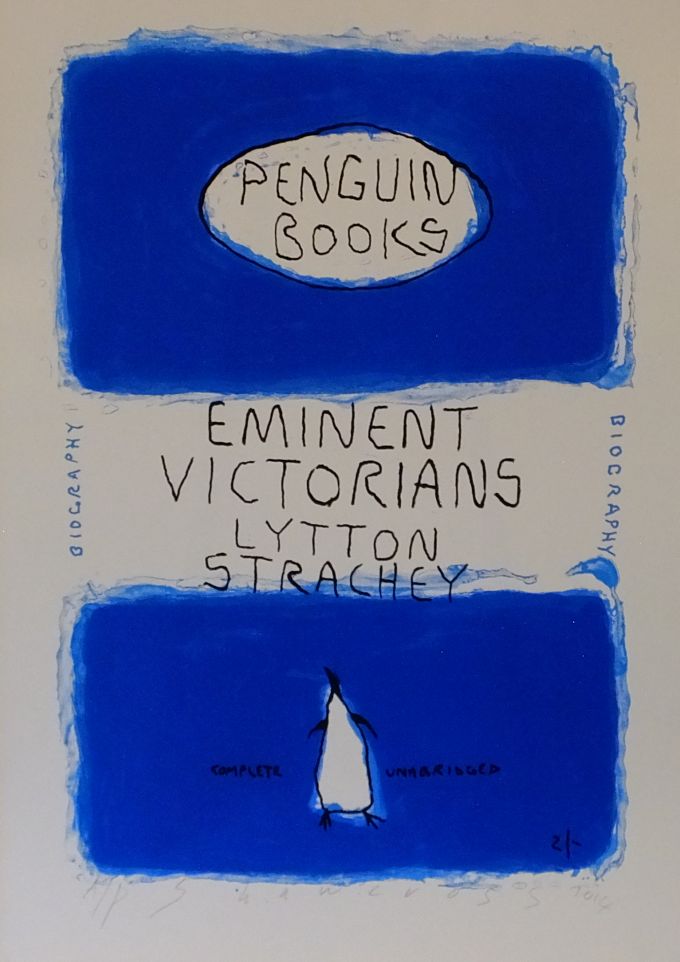 PENGUIN
BOOKS
EMINENT
VICTORIANS
LYTTON
STRACHEY
BIOGRAPHY
BIOGRAPHY
COMPLETE
UNABRIDGED
2/-
A/P Shawcross 2014